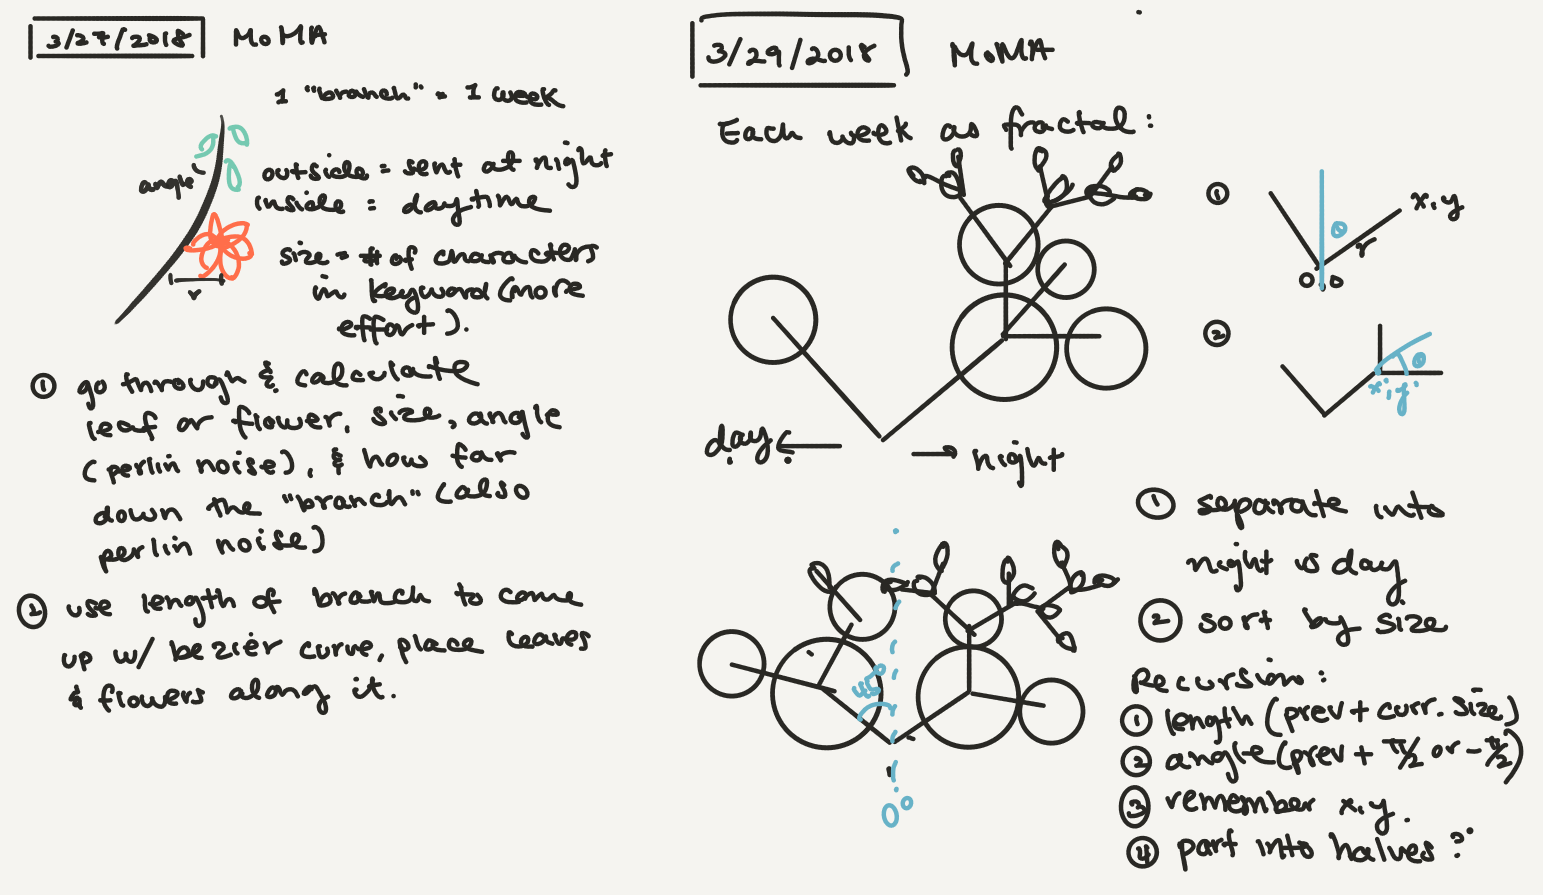 3/27/2018 MoMA
1 "branch" = 1 week
angle
outside = sent at night
inside = daytime
r
size = # of characters
in keyword (more
effort).
① go through & calculate
leaf or flower, size, angle
(perlin noise), & how far
down the "branch" (also
perlin noise)
② use length of branch to come
up w/ bezier curve, place leaves
& flowers along it.
3/29/2018 MoMA
Each week as fractal:
day ← → night
①
x,y
θ
r
0,0
②
θ
x,y
0°
① separate into
night vs day
② sort by size
Recursion:
① length (prev + curr. size)
② angle (prev + π/2 or -π/2)
③ remember x,y.
④ part into halves?